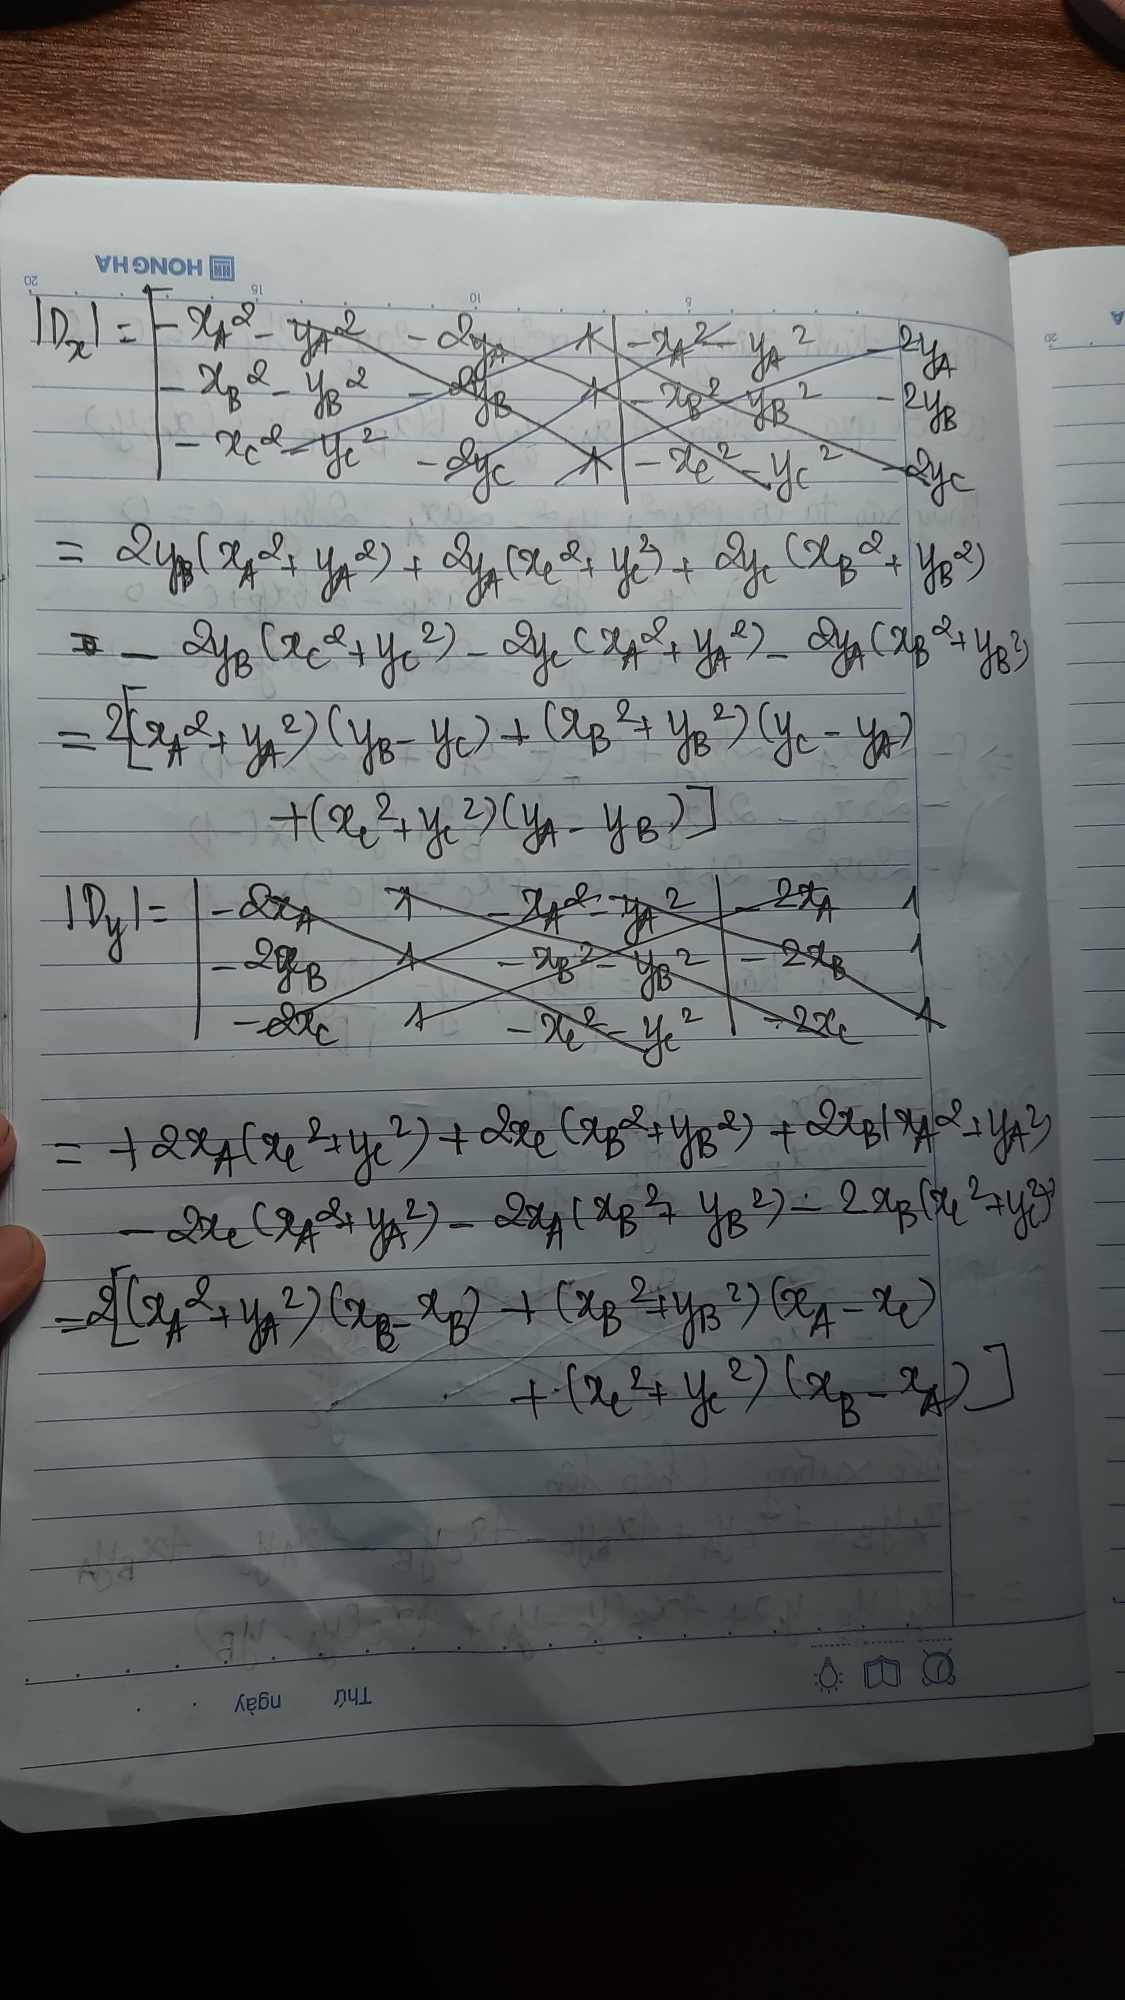 HONG HA
20 15 10 5
|Dx| = | -xA² - yA² -2yA 1 | -xA² - yA² -2yA
-xB² - yB² -2yB 1 | -xB² - yB² -2yB
-xC² - yC² -2yC 1 | -xC² - yC² -2yC
= 2yB(xA² + yA²) + 2yA(xC² + yC²) + 2yC(xB² + yB²)
- 2yB(xC² + yC²) - 2yC(xA² + yA²) - 2yA(xB² + yB²)
= 2[(xA² + yA²)(yB - yC) + (xB² + yB²)(yC - yA)
+ (xC² + yC²)(yA - yB)]
|Dy| = | -2xA 1 -xA² - yA² | -2xA 1
-2xB 1 -xB² - yB² | -2xB 1
-2xC 1 -xC² - yC² | -2xC 1
= +2xA(xC² + yC²) + 2xC(xB² + yB²) + 2xB(xA² + yA²)
- 2xC(xA² + yA²) - 2xA(xB² + yB²) - 2xB(xC² + yC²)
= 2[(xA² + yA²)(xB - xB) + (xB² + yB²)(xA - xC)
+ (xC² + yC²)(xB - xA)]
Thứ ngày